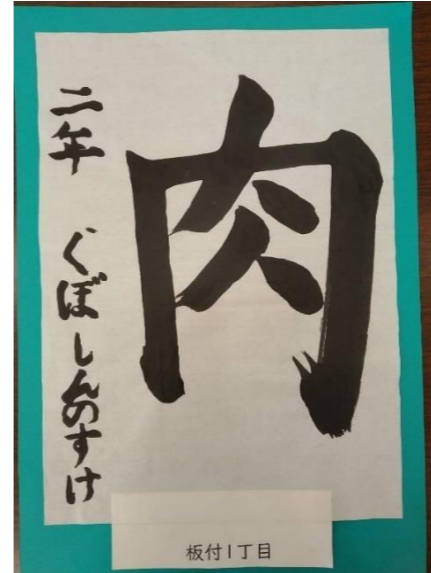 肉
二年 くぼしんのすけ
板付1丁目